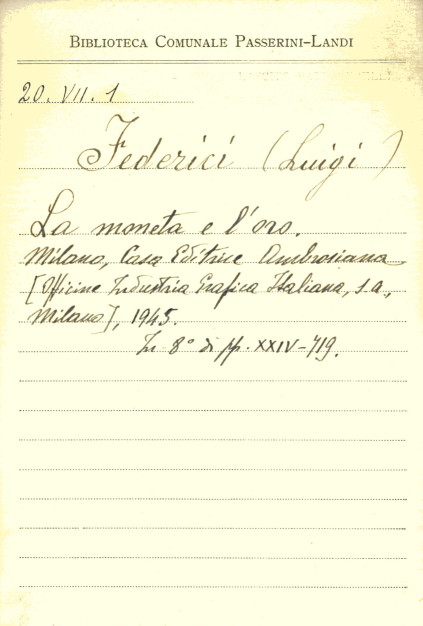 BIBLIOTECA COMUNALE PASSERINI-LANDI
20. VII. 1
Federici (Luigi)
La moneta e l'oro.
Milano, Casa Editrice Ambrosiana
[Officine Industria Grafica Italiana, s.a.,
Milano], 1945.
In 8° di pp. XXIV-719.